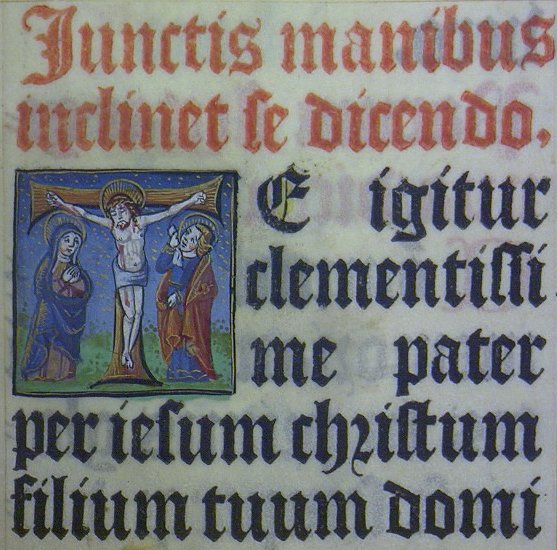 Junctis manibus
inclinet se dicendo.
TE igitur
clementissi
me pater
per iesum christum
filium tuum domi